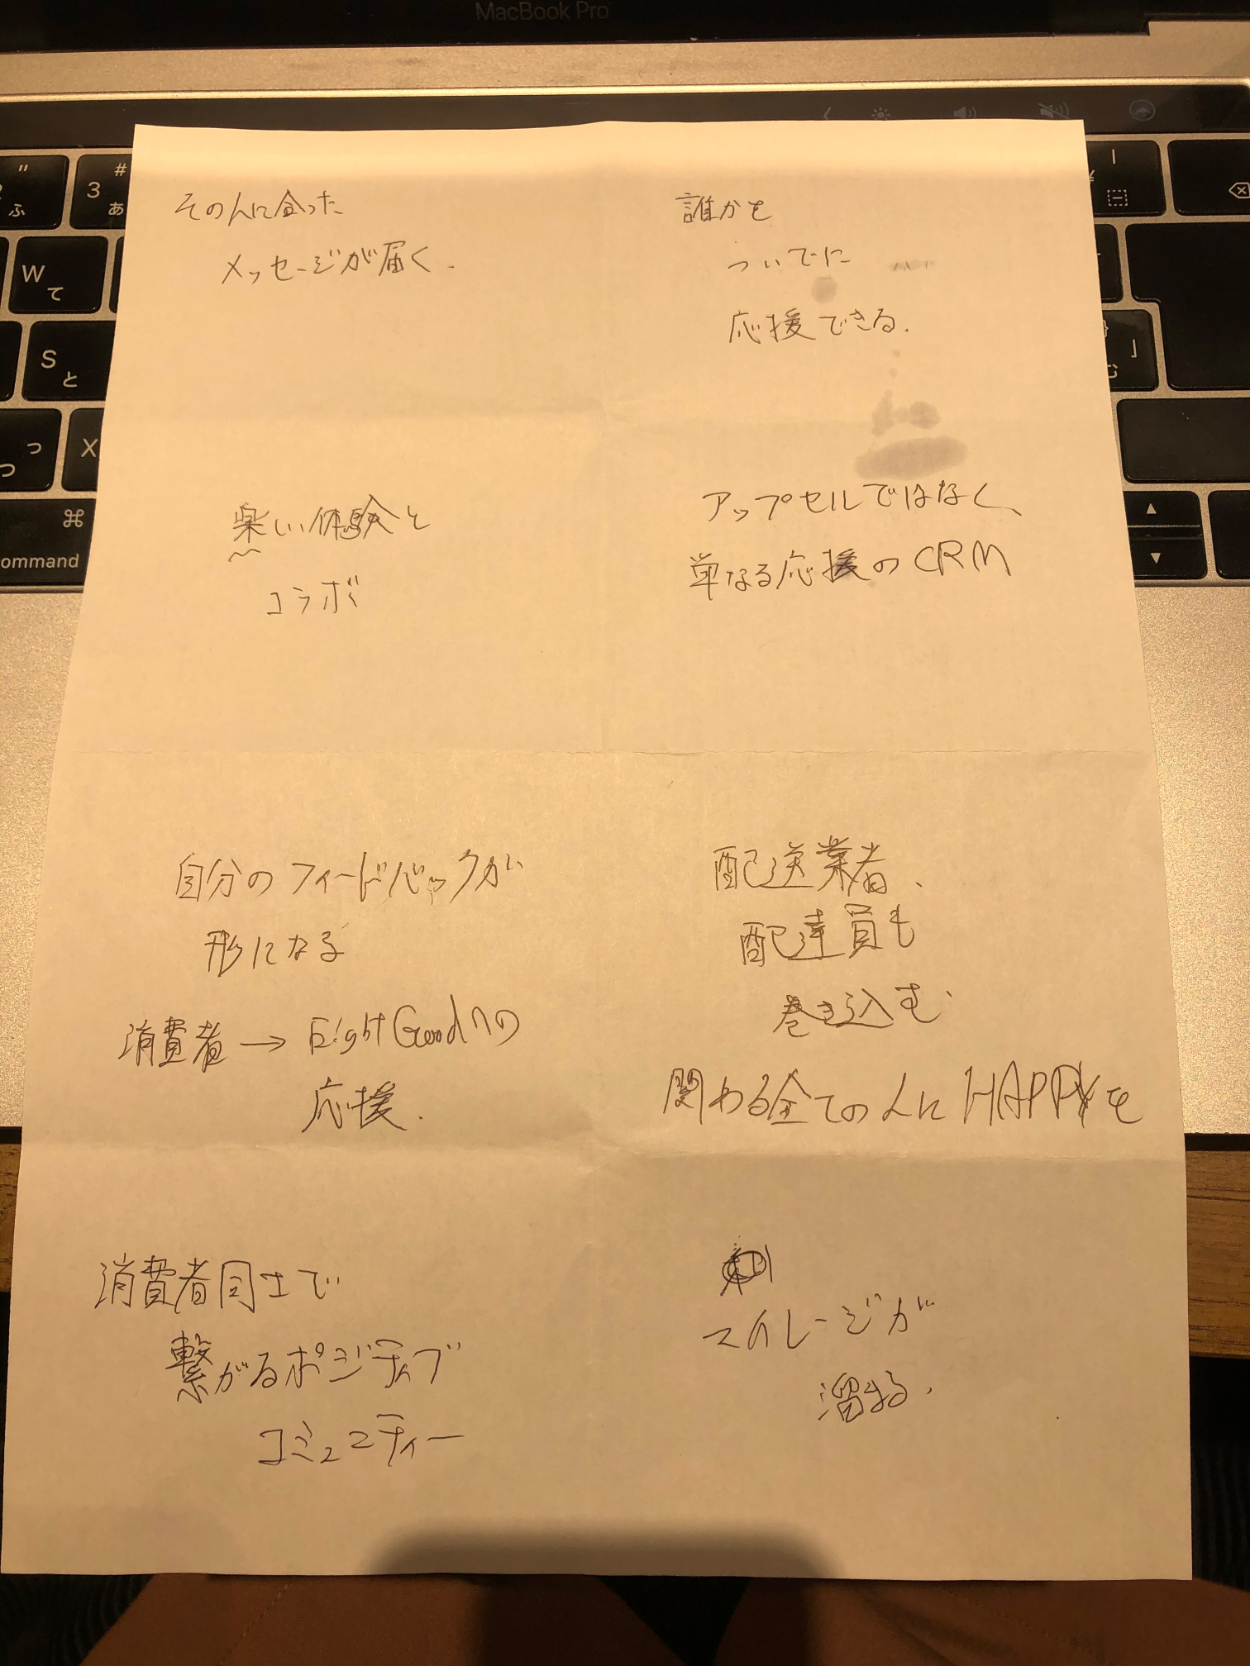 MacBook Pro
その人に合った
メッセージが届く.
誰かを
ついでに
応援できる.
楽しい体験と
コラボ
アップセルではなく、
単なる応援のCRM
自分のフィードバックが
形になる
消費者→EightGoodへの
応援.
配送業者、
配達員も
巻き込む.
関わる全ての人にHAPPYを
消費者同士で
繋がるポジティブ
コミュニティー
マイレージが
溜まる.
#
3
あ
ふ
W
て
S
と
つ
っ
X
⌘
command
」
む